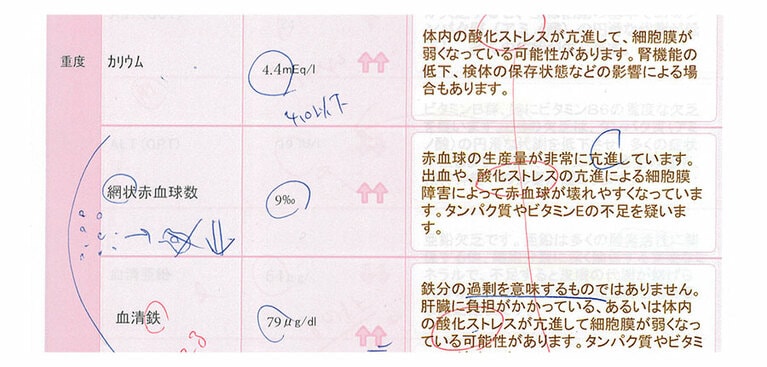 重度
カリウム
4.4mEq/l
4.0以下
体内の酸化ストレスが亢進して、細胞膜が
弱くなっている可能性があります。腎機能の
低下、検体の保存状態などの影響による場
合もあります。
網状赤血球数
9‰
赤血球の生産量が非常に亢進しています。
出血や、酸化ストレスの亢進による細胞膜
障害によって赤血球が壊れやすくなっていま
す。タンパク質やビタミンEの不足を疑いま
す。
血清鉄
79μg/dl
鉄分の過剰を意味するものではありません。
肝臓に負担がかかっている、あるいは体内
の酸化ストレスが亢進して細胞膜が弱くなっ
ている可能性があります。タンパク質やビタミ